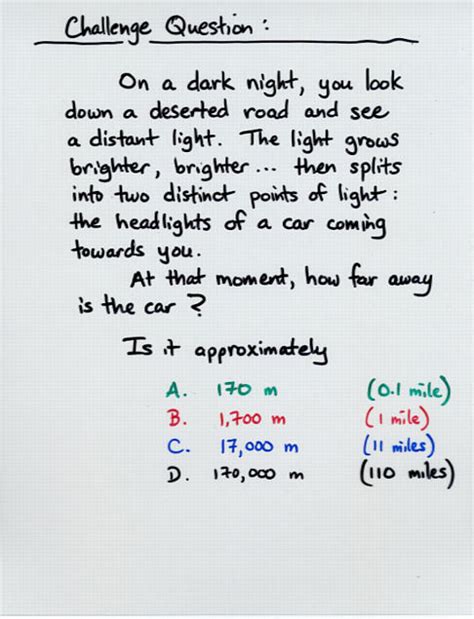 Challenge Question :
On a dark night, you look
down a deserted road and see
a distant light. The light grows
brighter, brighter... then splits
into two distinct points of light :
the headlights of a car coming
towards you.
At that moment, how far away
is the car ?
Is it approximately
A. 170 m (0.1 mile)
B. 1,700 m (1 mile)
C. 17,000 m (11 miles)
D. 170,000 m (110 miles)